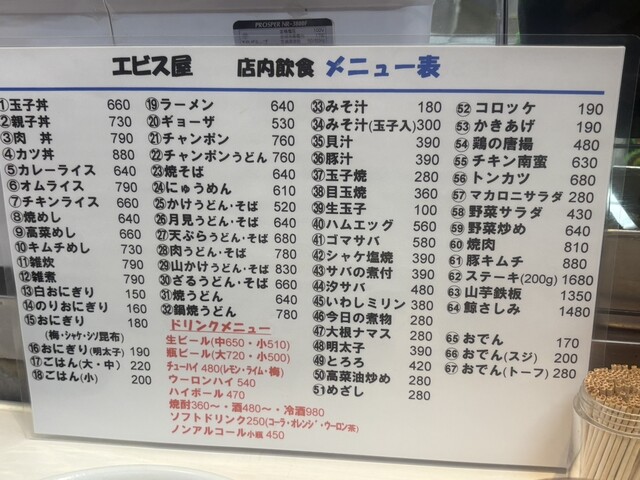 PROSPER NE-3800F
エビス屋 店内飲食 メニュー表
①玉子丼 660
②親子丼 730
③肉 丼 790
④カツ丼 880
⑤カレーライス 640
⑥オムライス 790
⑦チキンライス 660
⑧焼めし 640
⑨高菜めし 660
⑩キムチめし 730
⑪雑炊 790
⑫雑煮 790
⑬白おにぎり 150
⑭のりおにぎり 160
⑮おにぎり 180
(梅・シャケ・シソ昆布)
⑯おにぎり(明太子) 190
⑰ごはん(大・中) 220
⑱ごはん(小) 200
⑲ラーメン 640
⑳ギョーザ 530
㉑チャンポン 760
㉒チャンポンうどん 760
㉓焼そば 640
㉔にゅうめん 610
㉕かけうどん・そば 520
㉖月見うどん・そば 640
㉗天ぷらうどん・そば 680
㉘肉うどん・そば 780
㉙山かけうどん・そば 830
㉚ざるうどん・そば 660
㉛焼うどん 640
㉜鍋焼うどん 780
ドリンクメニュー
生ビール(中650・小510)
瓶ビール(大720・小500)
チューハイ 480(レモン・ライム・梅)
ウーロンハイ 540
ハイボール 470
焼酎360〜・酒480〜・冷酒980
ソフトドリンク250(コーラ・オレンジ・ウーロン茶)
ノンアルコール小瓶 450
㉝みそ汁 180
㉞みそ汁(玉子入)300
㉟貝汁 390
㊱豚汁 390
㊲玉子焼 280
㊳目玉焼 360
㊴生玉子 100
㊵ハムエッグ 560
㊶ゴマサバ 580
㊷シャケ塩焼 390
㊸サバの煮付 390
㊹汐サバ 480
㊺いわしミリン 380
㊻今日の煮物 280
㊼大根ナマス 280
㊽明太子 390
㊾とろろ 420
㊿高菜油炒め 280
51めざし 280
52 コロッケ 190
53 かきあげ 190
54 鶏の唐揚 480
55 チキン南蛮 630
56 トンカツ 680
57 マカロニサラダ 280
58 野菜サラダ 430
59 野菜炒め 640
60 焼肉 810
61 豚キムチ 880
62 ステーキ(200g) 1680
63 山芋鉄板 1350
64 鯨さしみ 1480
65 おでん 170
66 おでん(スジ) 200
67 おでん(トーフ) 280